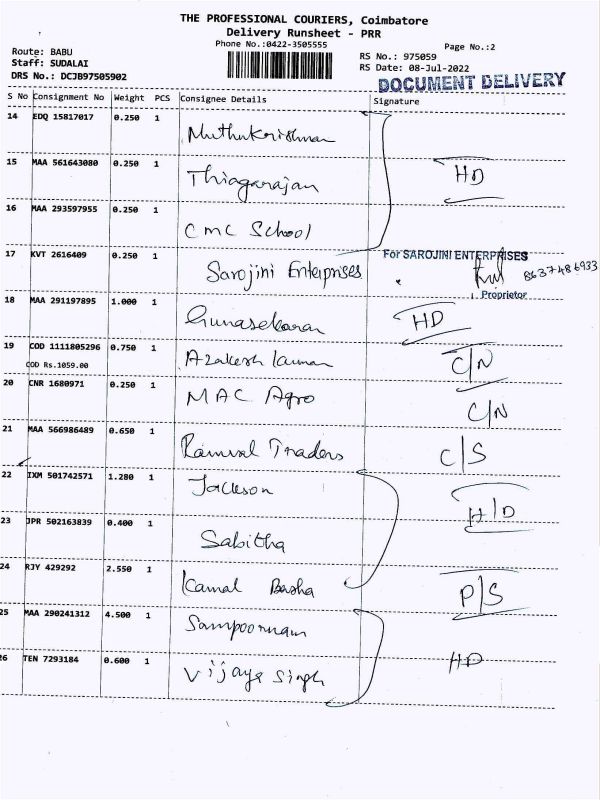 THE PROFESSIONAL COURIERS, Coimbatore
Delivery Runsheet - PRR
Phone No.:0422-3505555
Page No.:2
Route: BABU
Staff: SUDALAI
DRS No.: DCJB97505902
RS No.: 975059
RS Date: 08-Jul-2022
DOCUMENT DELIVERY
S No Consignment No Weight PCS Consignee Details Signature
14 EDQ 15817017 0.250 1 Muthukrishnan
15 MAA 561643080 0.250 1 Thiagarajan HD
16 MAA 293597955 0.250 1 CMC School
17 KVT 2616409 0.250 1 Sarojini Enterprises For SAROJINI ENTERPRISES
8637486933
Proprietor
18 MAA 291197895 1.000 1 Gunasekaran HD
19 COD 1111805296 0.750 1 C/N
COD Rs.1059.00
20 CNR 1680971 0.250 1 MAC Agro C/N
21 MAA 566986489 0.650 1 Traders C/S
22 IXM 501742571 1.280 1 Jackson H/D
23 JPR 502163839 0.400 1 Sabitha
24 RJY 429292 2.550 1 Kamal Basha P/S
25 MAA 290241312 4.500 1 Sampoornam
26 TEN 7293184 0.600 1 Vijaya Singh HD